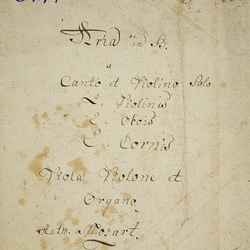 Aria in B.
a
Canto et Violino Solo
2. Violinis
2. Obois
2. Cornis
Viola Violone et
Organo
Auth. Mozart.